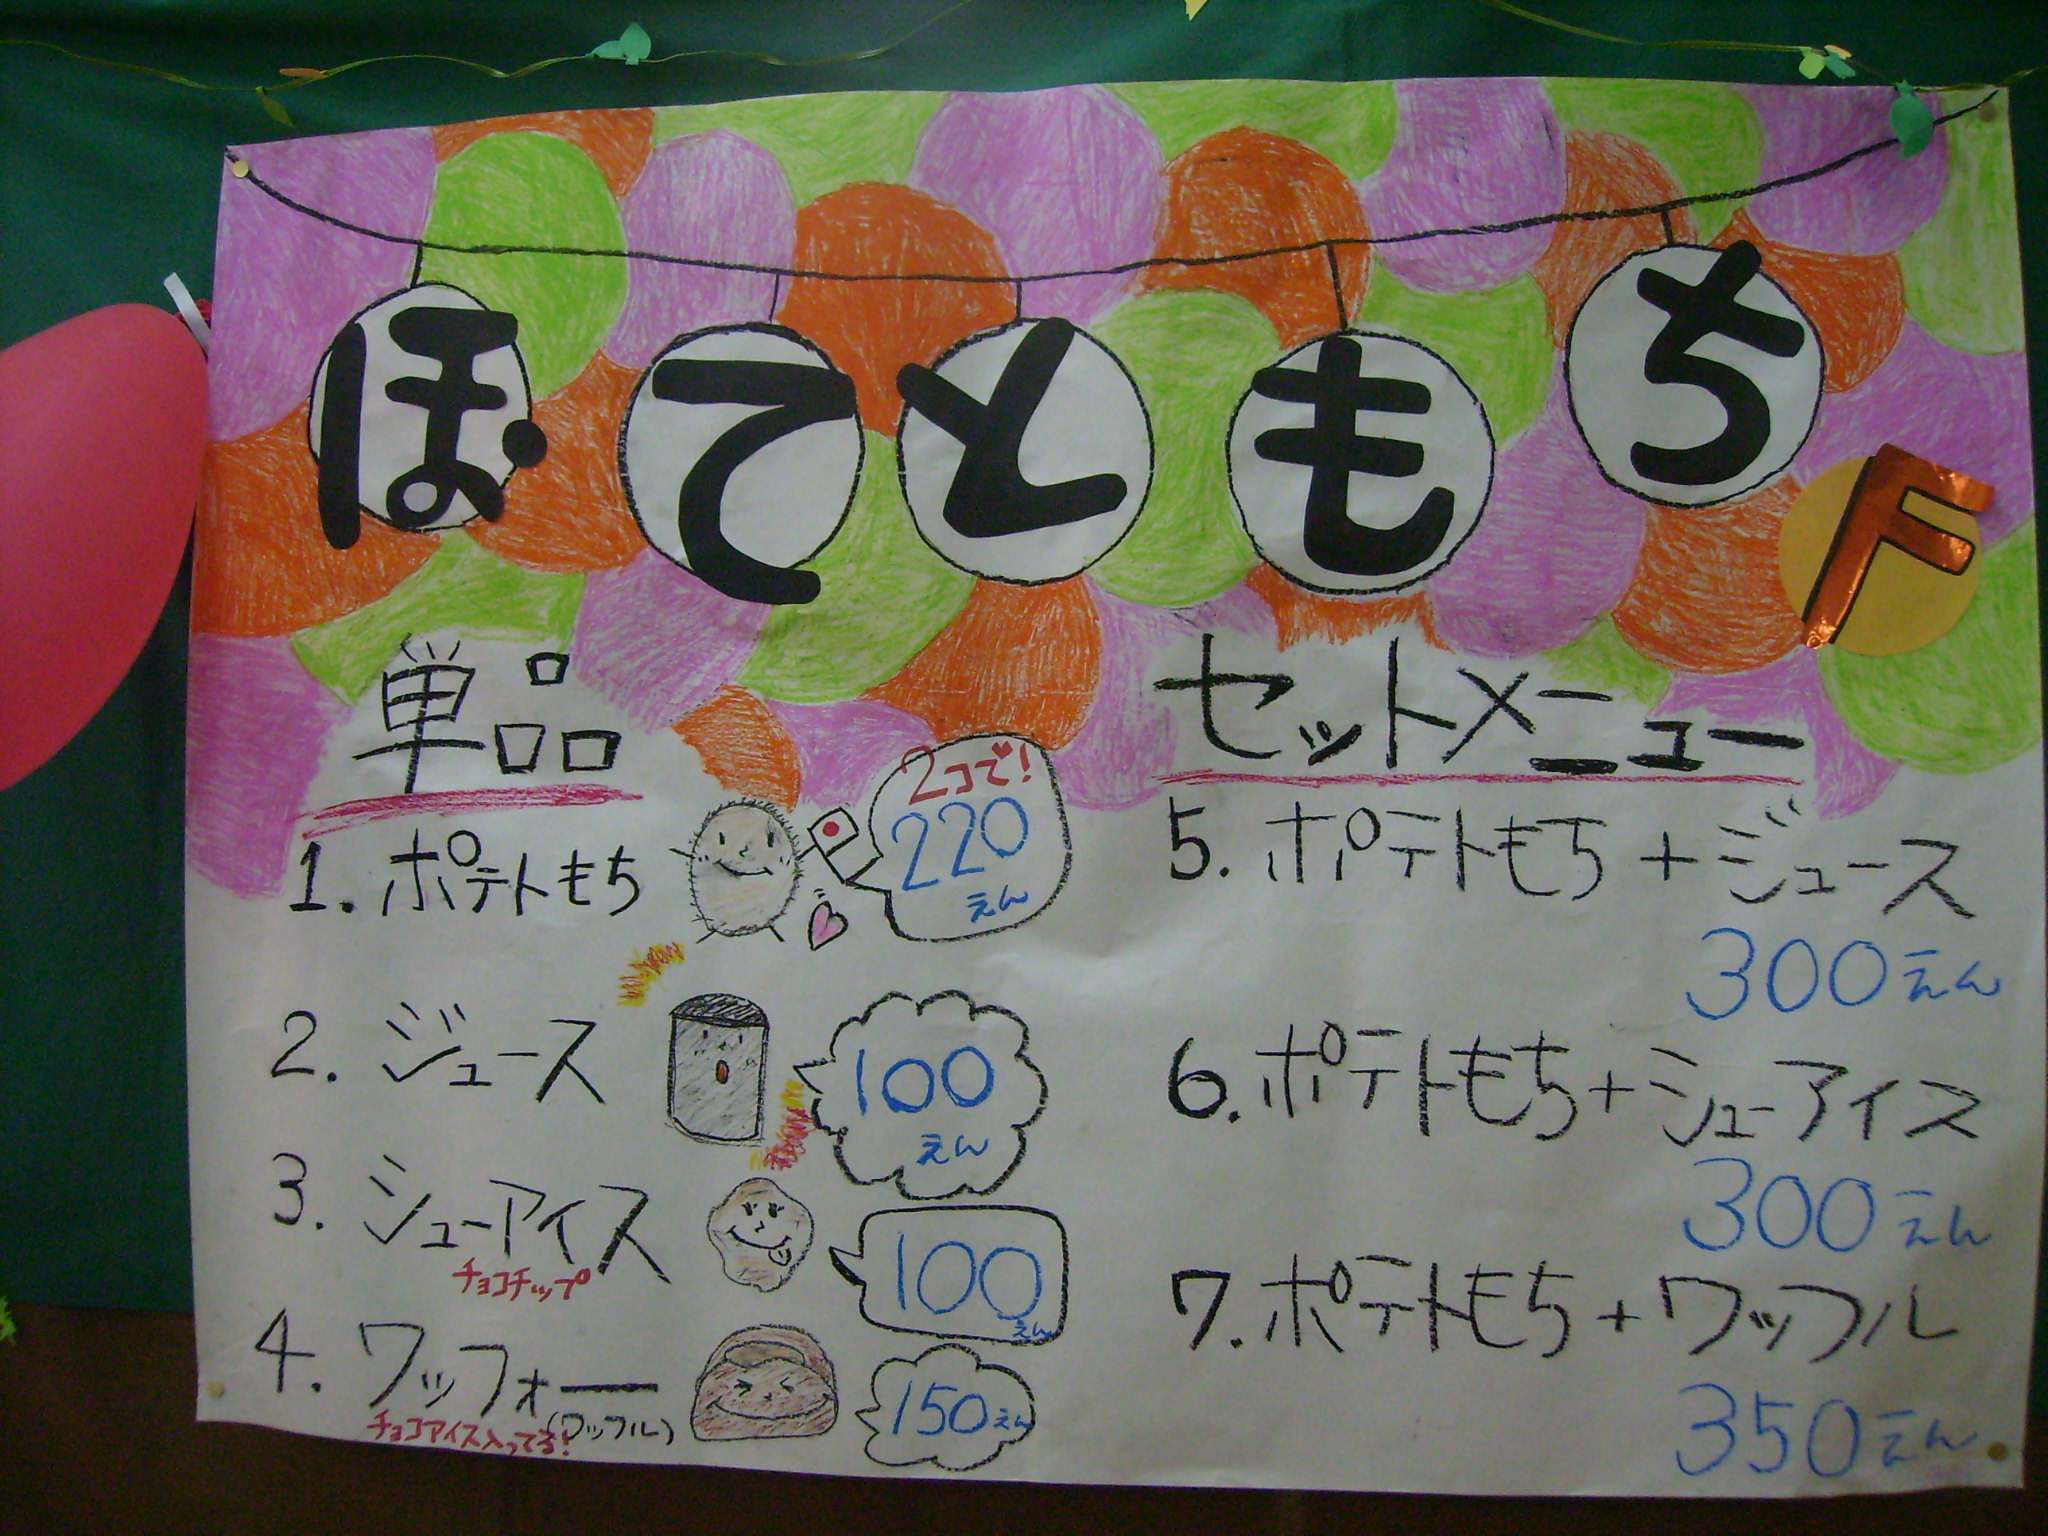 ぽてともち
F
単品
1. ポテトもち
2コで!
220
えん
2. ジュース
100
えん
3. シューアイス
チョコチップ
100
えん
4. ワッフォー
(ワッフル)
チョコアイス入ってる!
150えん
セットメニュー
5. ポテトもち+ジュース
300えん
6. ポテトもち+シューアイス
300えん
7. ポテトもち+ワッフル
350えん